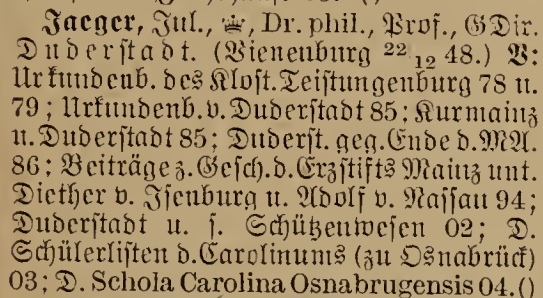 Jaeger, Jul., Dr. phil., Prof., GDir.
Duderstadt. (Vienenburg 22 12 48.) V:
Urkundenb. des Klost. Teistungenburg 78 u.
79; Urkundenb. v. Duderstadt 85; Kurmainz
u. Duderstadt 85; Duderst. geg. Ende d. MA.
86; Beiträge z. Gesch. d. Erzstifts Mainz unt.
Diether v. Isenburg u. Adolf v. Nassau 94;
Duderstadt u. s. Schützenwesen 02; D.
Schülerlisten d. Carolinums (zu Osnabrück)
03; D. Schola Carolina Osnabrugensis 04.()